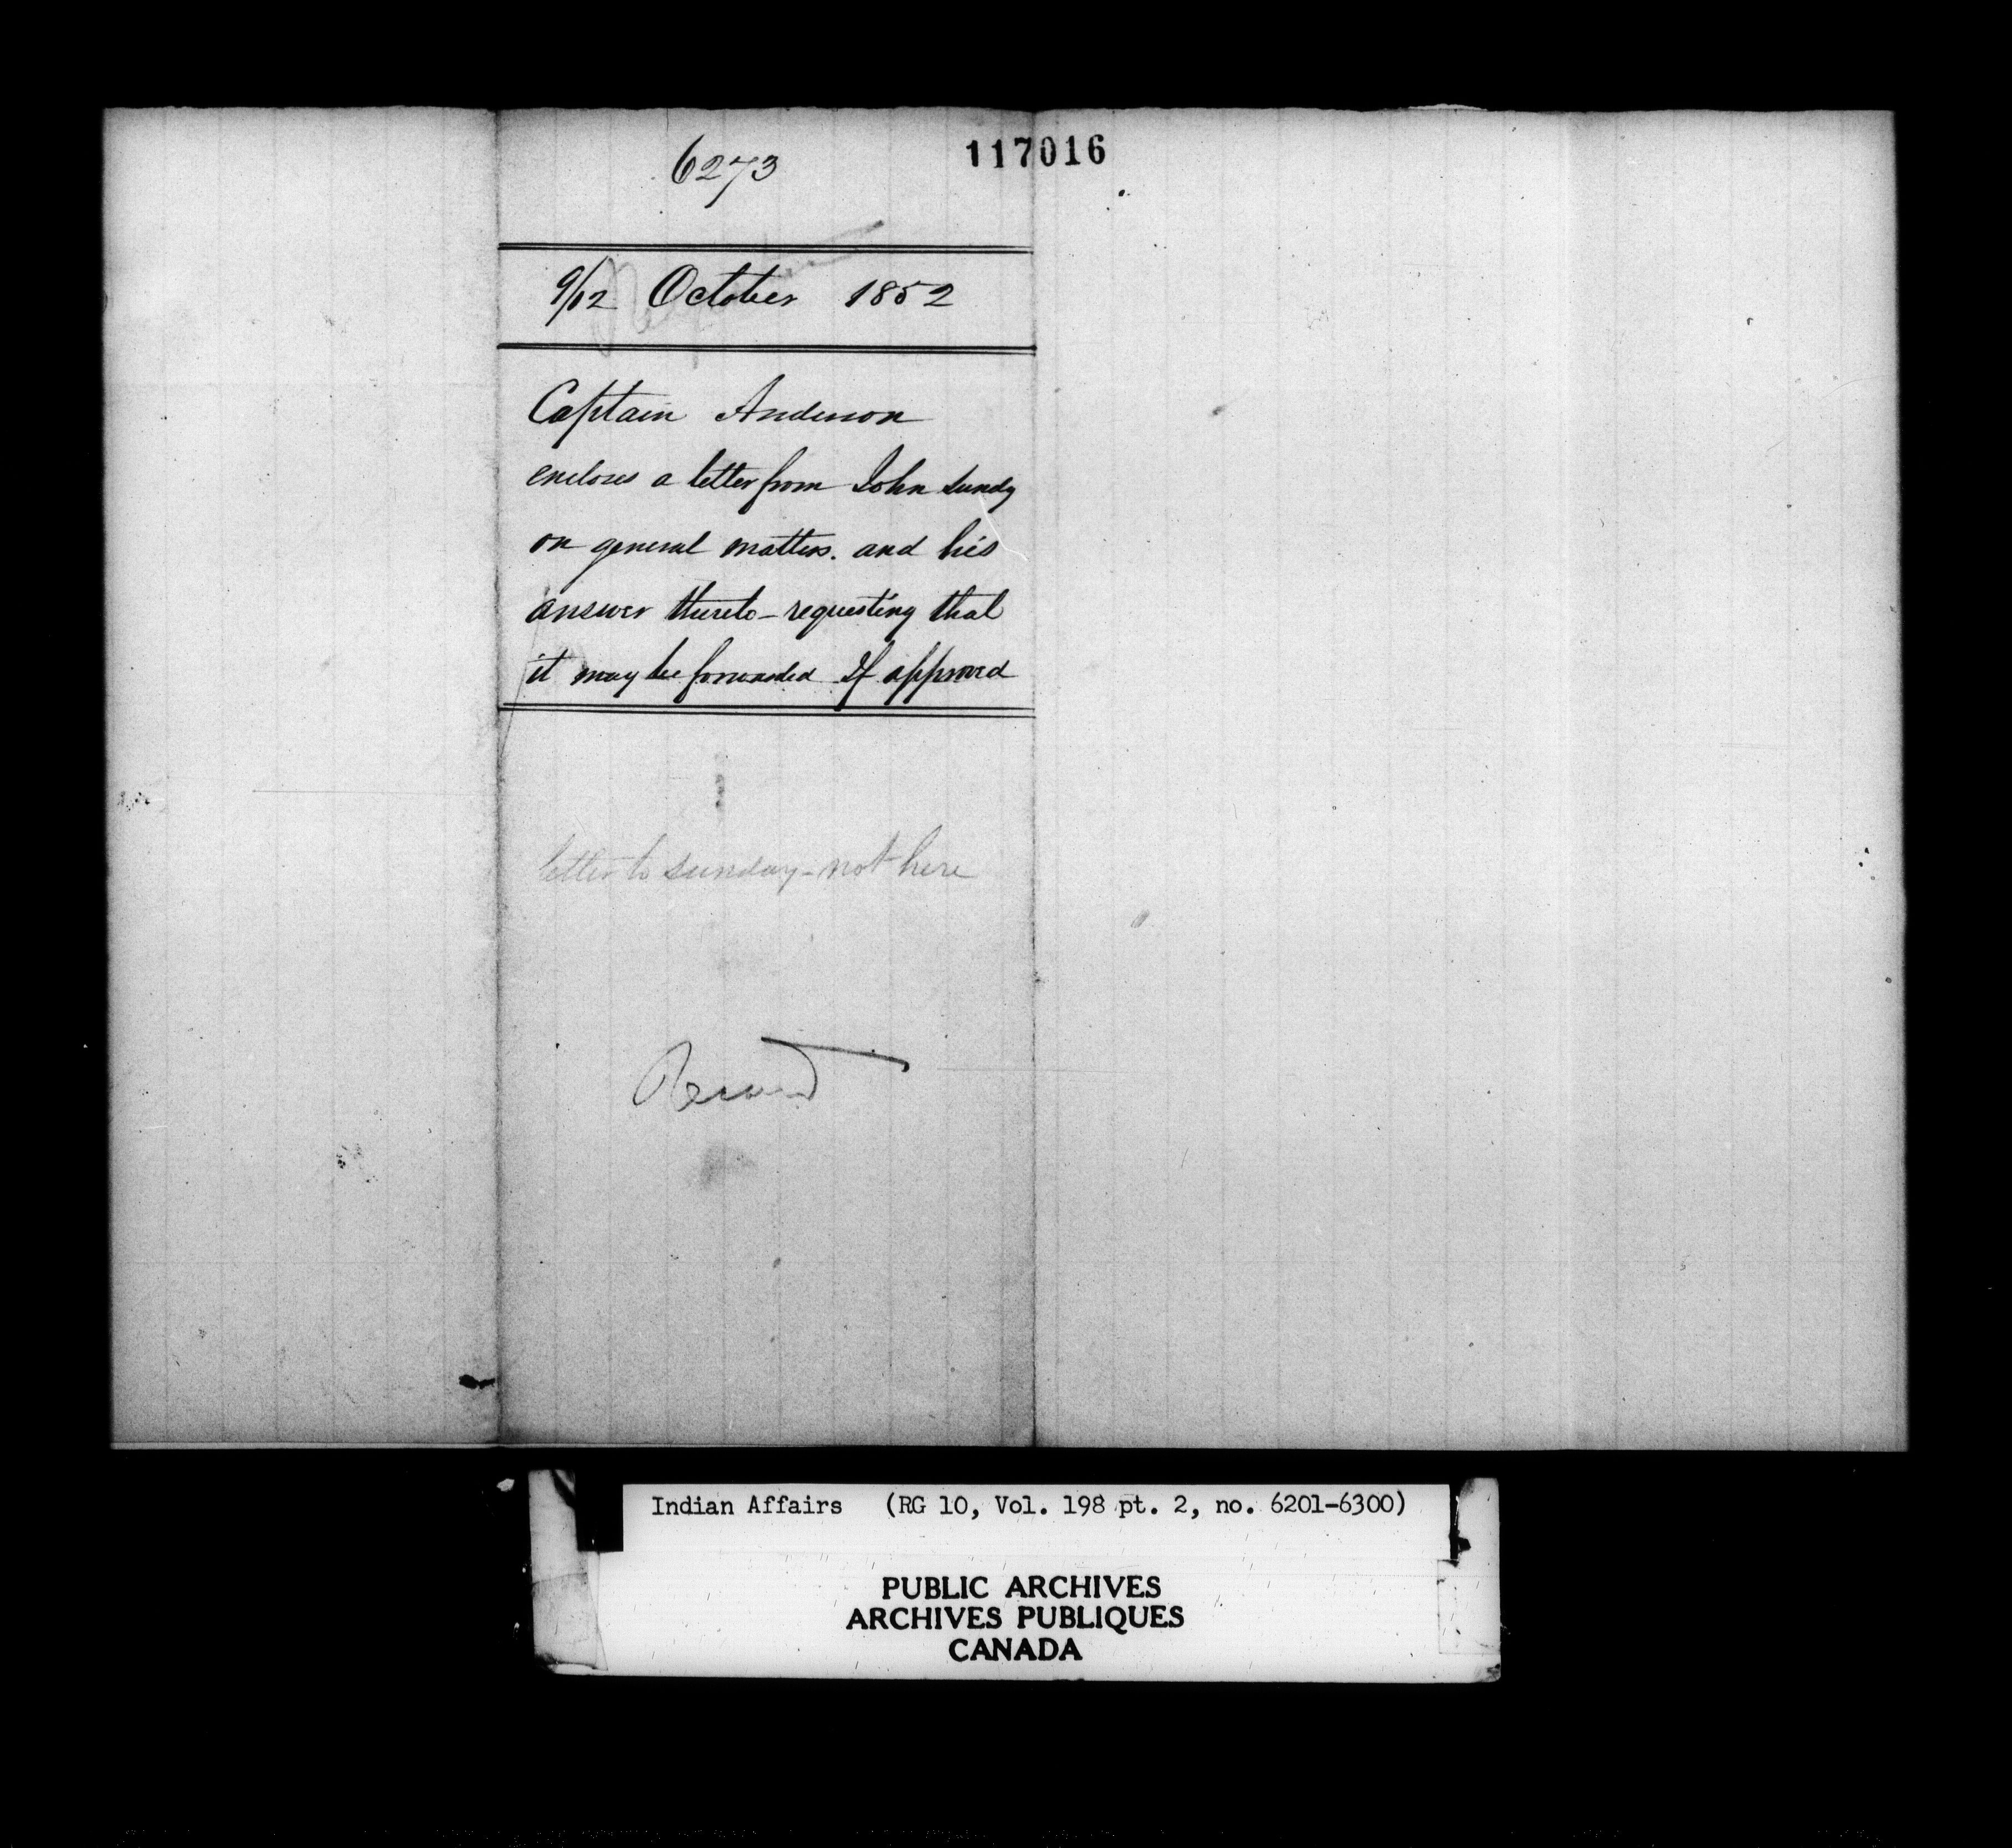 6273
117016
9/12 October 1852
Captain Anderson
encloses a letter from John Sundy
on general matters. and his
answer thereto - requesting that
it may be forwarded if approved
letter to Sunday - not here
Indian Affairs (RG 10, Vol. 198 pt. 2, no. 6201-6300)
PUBLIC ARCHIVES
ARCHIVES PUBLIQUES
CANADA